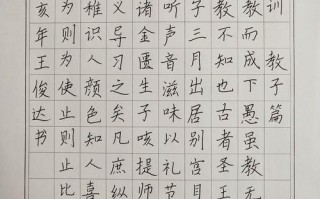 训教子篇
教而成下愚虽教无
教不知也古者圣王
子三月出居别宫目
听声音滋味以礼节
诸金匮生子咳提师
义导习之矣凡庶纵
稚识人颜色知人喜
为则为使止则止比
亥年王俊达书